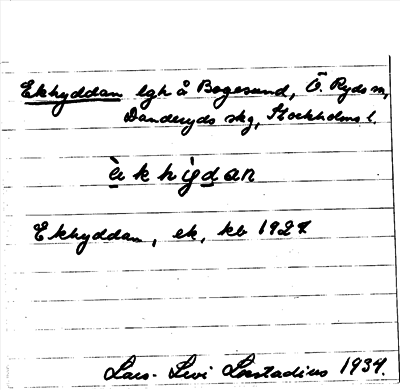 Ekhyddan lgh å Bogesund, Ö. Ryds sn,
Danderyds skg, Stockholms l.
èkhı̀gdan
Ekhyddan, ek, kb 1927
Lars-Levi Læstadius 1934.